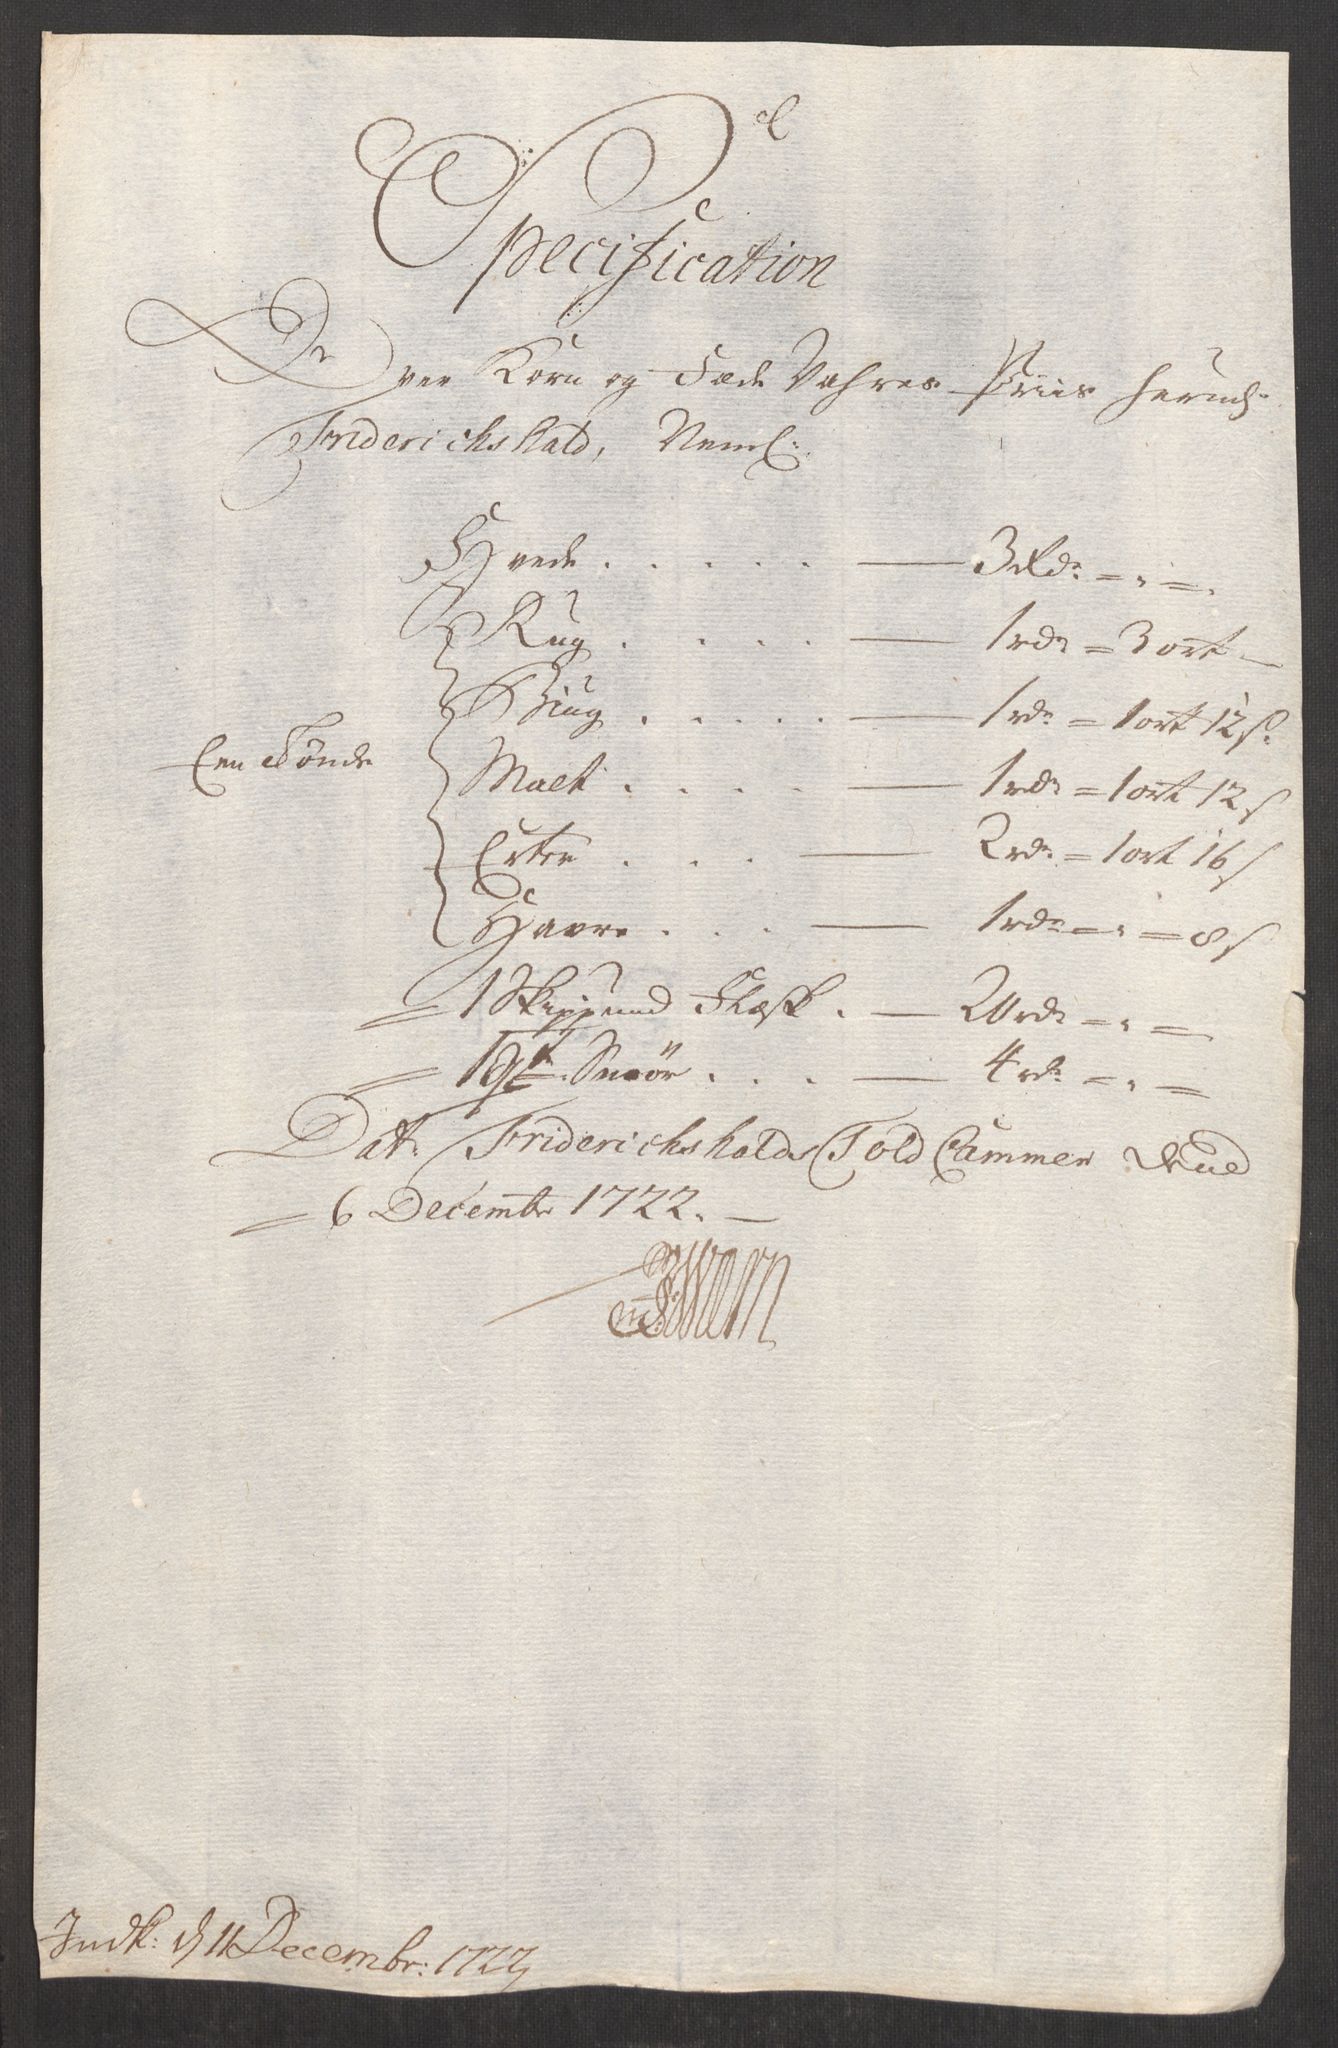 Specification
Over Korn og Fæde Vahres Priis herud.
Friderichshald, Neml:
Hvede . . . . . — 3 Rd. = " = "
Rug . . . . — 1 rd. = 3 ort —
Biug . . . . . — 1 rd. = 1 ort 12 s.
Een Tønde
Malt . . . . — 1 rd. = 1 ort 12 s
Erter . . . — 2 rd. = 1 ort 16 s
Havre . . . — 1 rd. = " = 8 s
= 1 Skippund Flæsk . — 20 rd. = " =
= 1 qt. Smør . . . — 4 rd. = " =
Dat. Friderichshalds Told Cammer dend
= 6 Decembr 1722. —
Indk: d 11 Decembr: 1722